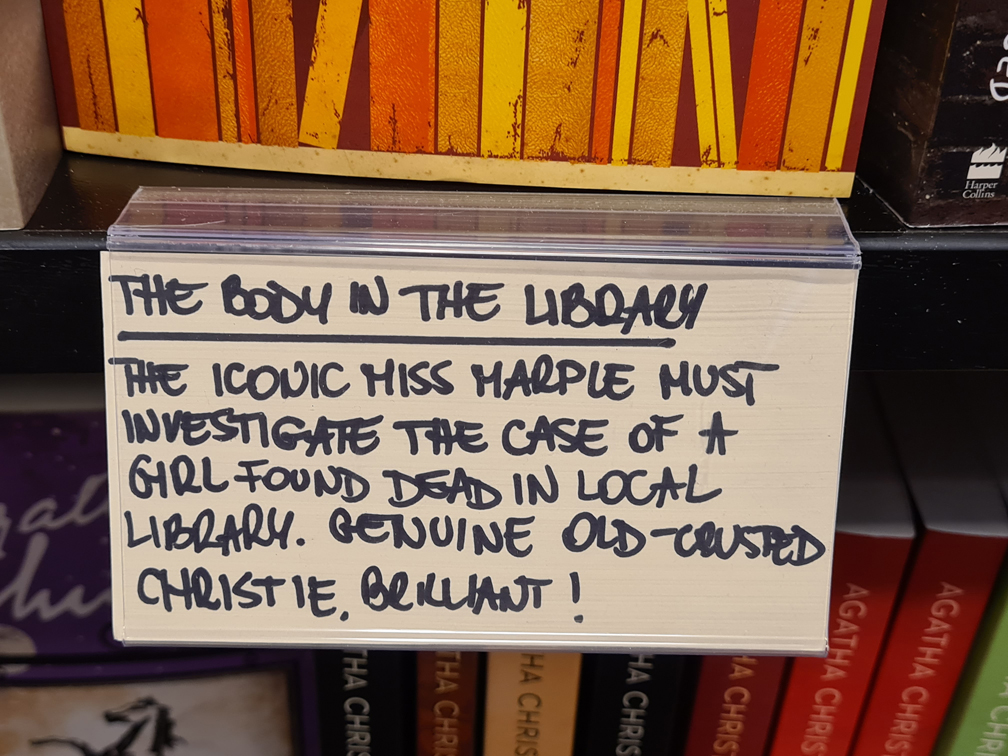 Harper
Collins
THE BODY IN THE LIBRARY
THE ICONIC MISS MARPLE MUST
INVESTIGATE THE CASE OF A
GIRL FOUND DEAD IN LOCAL
LIBRARY. GENUINE OLD-CRUSTED
CHRISTIE. BRILLIANT!
HA CHRIS
HA CHRIS
HA CHRIS
HA CHRIS
HA CHRIS
AGATHA CHRIS
AGATHA CHRIS